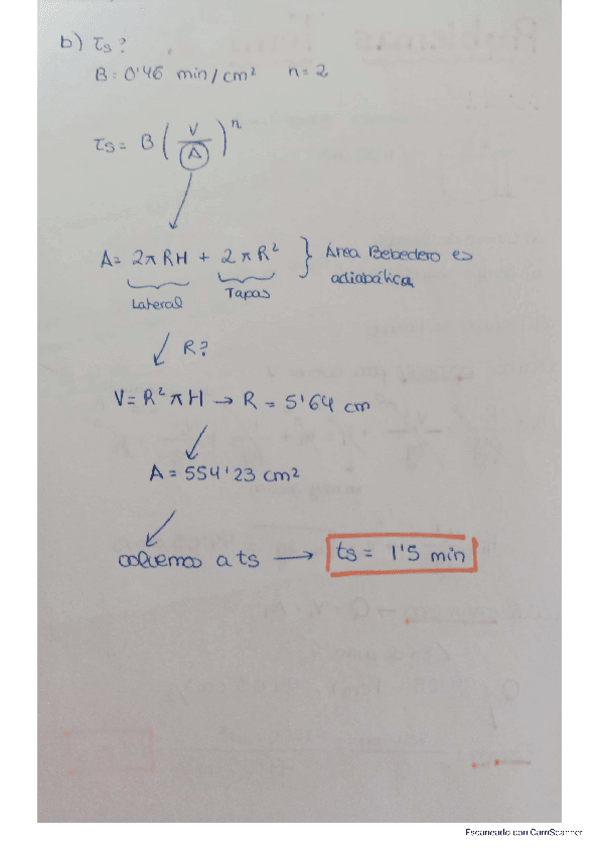 b) τs?
B = 0'46 min/cm² n = 2
τs = B (V/A)ⁿ
A = 2πRH + 2πR² } Área Bebedero es
Lateral Tapas adiabática
R?
V = R²πH → R = 5'64 cm
A = 554'23 cm²
volvemos a ts → ts = 1'5 min
Escaneado con CamScanner